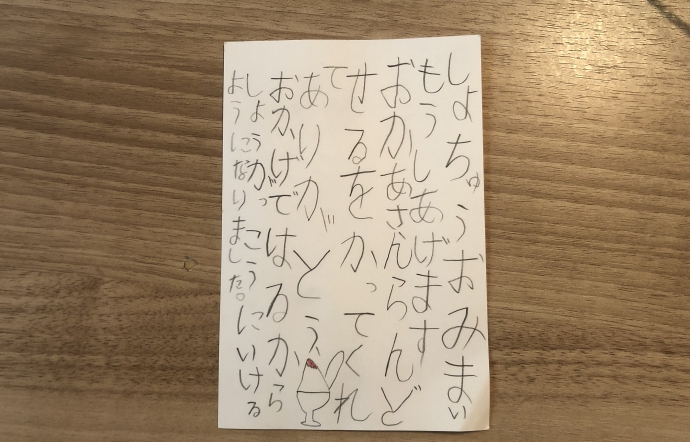 しょちゅうおみまい
もうしあげます
おかあさんらんど
せるをかってくれ
て
ありがとう
おかげではるから
しょうがっこうにいける
ようになりました。